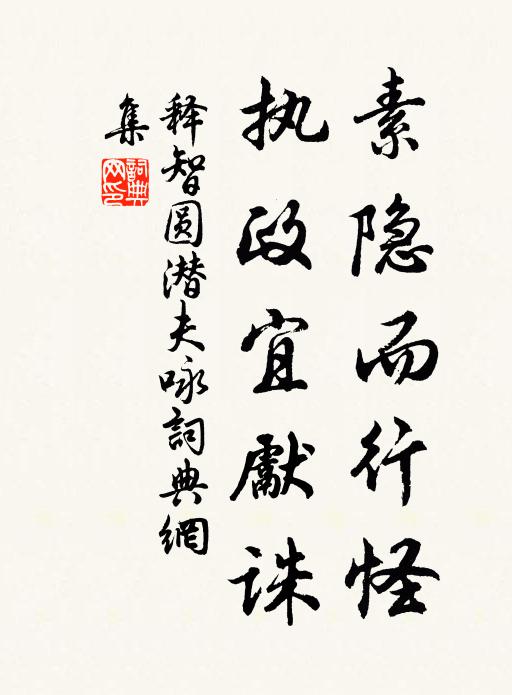 素隐而行怪
执政宜献诛
释智圆潜夫咏詞典網
集
詞典
网印